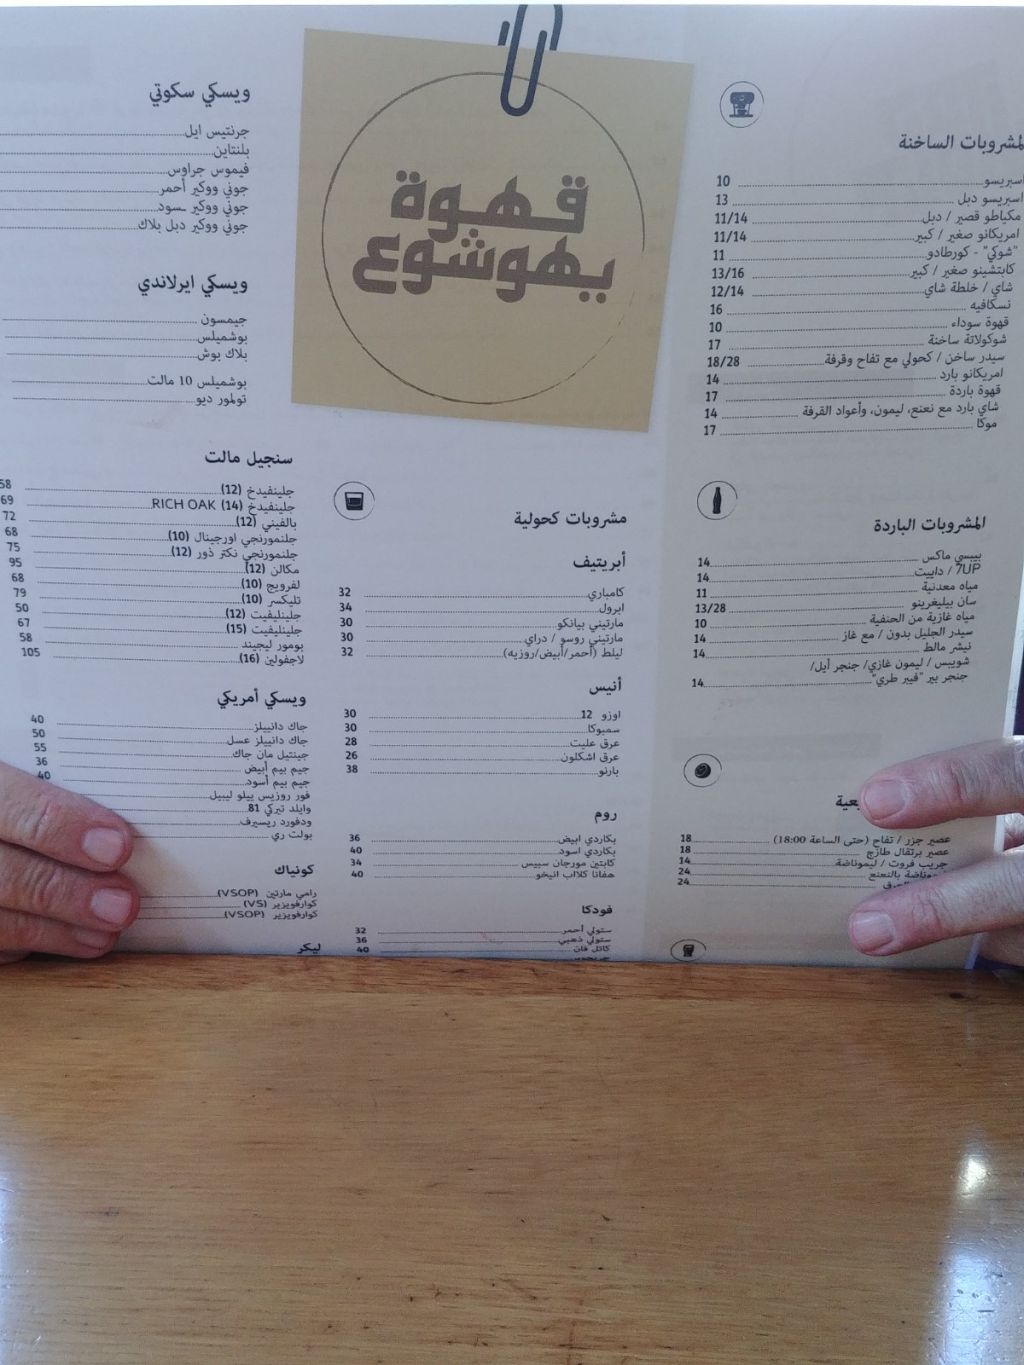 قهوة
يهوشوع
المشروبات الساخنة
اسبريسو 10
اسبريسو دبل 13
مكياطو قصير / دبل 11/14
امريكانو صغير / كبير 11/14
"شوكي" - كورطادو 11
كابتشينو صغير / كبير 13/16
شاي / خلطة شاي 12/14
نسكافيه 16
قهوة سوداء 10
شوكولاتة ساخنة 17
سيدر ساخن / كحولي مع تفاح وقرفة 18/28
امريكانو بارد 14
قهوة باردة 17
شاي بارد مع نعنع، ليمون، وأعواد القرفة 14
موكا 17
المشروبات الباردة
بيبسي ماكس 14
7UP / دايیت 14
مياه معدنية 11
سان بيليغرينو 13/28
مياه غازية من الحنفية 10
سيدر الجليل بدون / مع غاز 14
نيشر مالط 14
شويبس / ليمون غازي/ جنجر أيل/
جنجر بير "فيبر طري" 14
عصير جزر / تفاح (حتى الساعة 18:00) 18
عصير برتقال طازج 18
جريب فروت / ليموناضة 14
بالنعنع 24
24
مشروبات كحولية
أبريتيف
كامباري 32
ابرول 34
مارتيني بيانكو 30
مارتيني روسو / دراي 30
ليلط (أحمر/أبيض/روزيه) 32
أنيس
اوزو 12 30
سمبوكا 30
عرق عليت 28
عرق اشكلون 26
بارنو 38
روم
بكاردي ابيض 36
بكاردي اسود 40
كابتين مورجان سبيس 34
هفانا كلااب انيخو 40
فودكا
ستولي أحمر 32
ستولي ذهبي 36
كاتل فان 40
ويسكي سكوتي
جرنتيس ايل
بلنتاين
فيموس جراوس
جوني ووكير أحمر
جوني ووكير ـسود
جوني ووكير دبل بلاك
ويسكي ايرلاندي
جيمسون
بوشميلس
بلاك بوش
بوشميلس 10 مالت
تولمور ديو
سنجيل مالت
جلينفيدخ (12) 58
جلينفيدخ (14) RICH OAK 69
بالفيني (12) 72
جلنمورنجي اورجينال (10) 68
جلنمورنجي نكتر ذور (12) 75
مكالن (12) 95
لفرويج (10) 68
تليكسر (10) 79
جلينليفيت (12) 50
جلينليفيت (15) 67
بومور ليجيند 58
لاجفولين (16) 105
ويسكي أمريكي
جاك دانييلز 40
جاك دانييلز عسل 50
جينتيل مان جاك 55
جيم بيم أبيض 36
جيم بيم أسود 40
فور روزيس ييلو ليبيل
وايلد تيركي 81
ودفورد ريسيرف
بولت ري
كونياك
رامي مارتين (VSOP)
كوارفويزير (VS)
كوارفويزير (VSOP)
ليكر